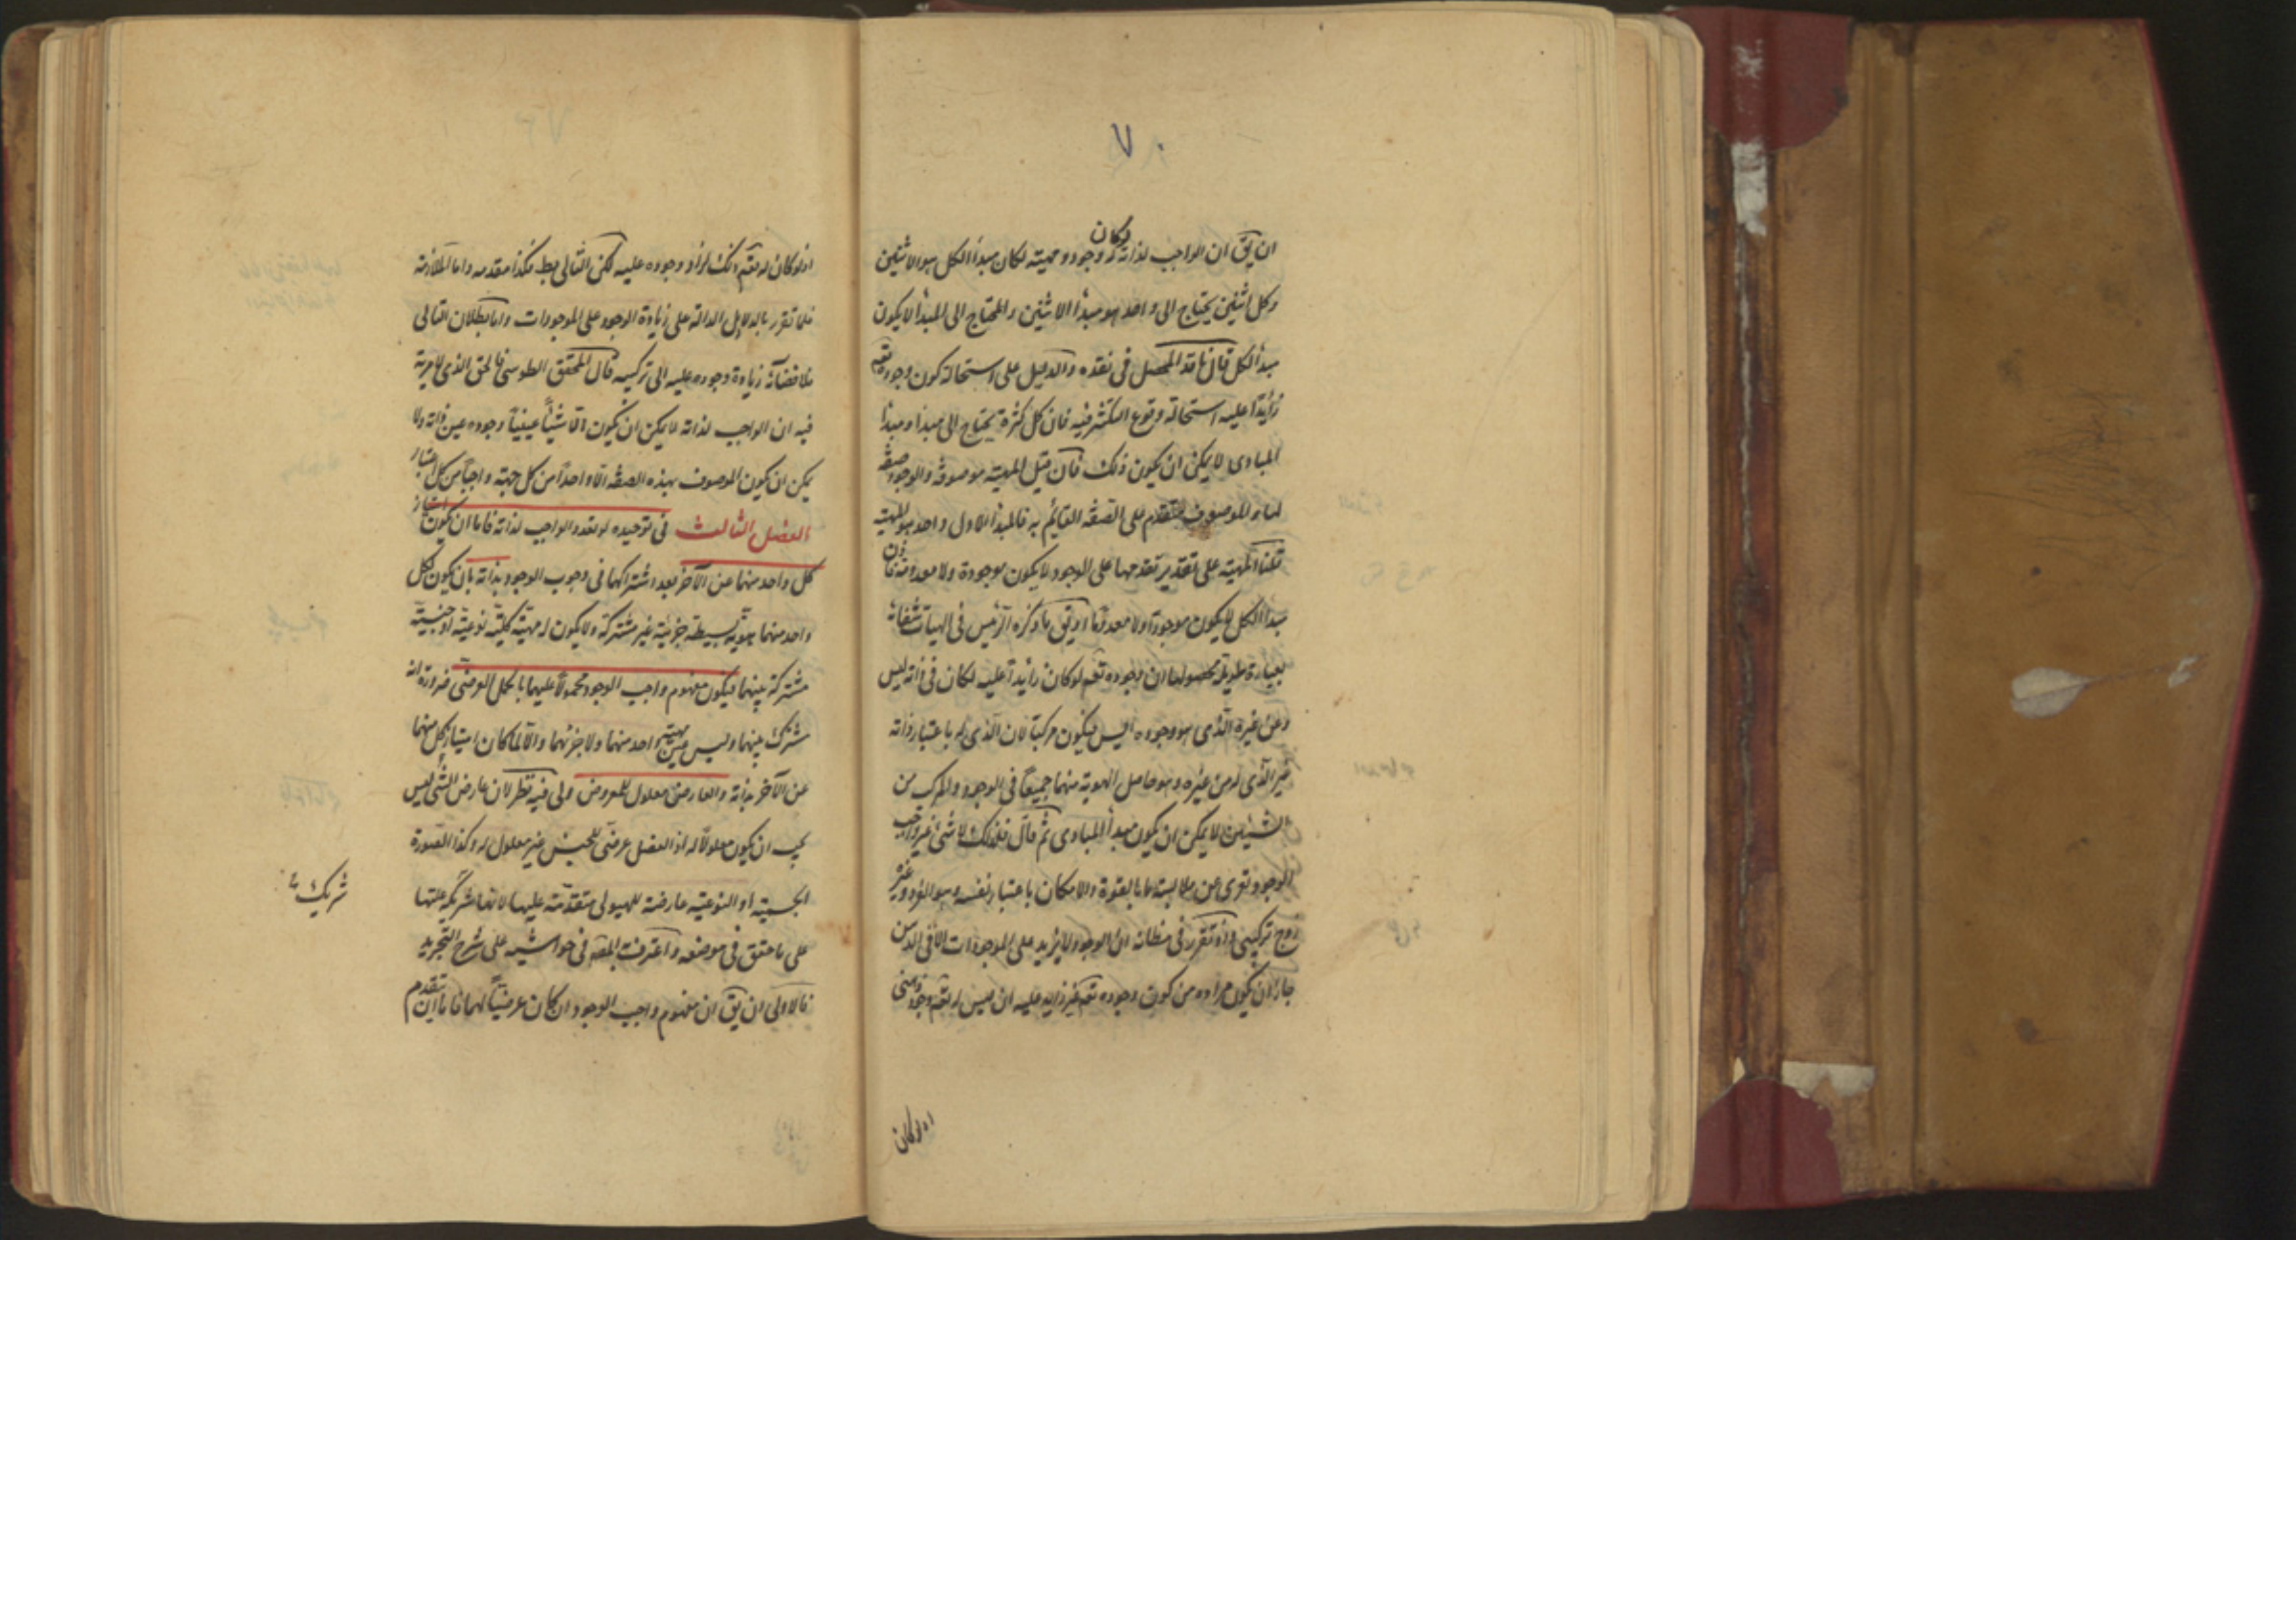 ٧٠
ان يق ان الواجب لذاته لوكان له وجود ومهية لكان مبدأ الكل هو الاثنين
وكل اثنين يحتاج الى واحد هو مبدأ الاثنين والمحتاج الى المبدأ لا يكون
مبدأ الكل قال ناقد المحصل فى نقده والدليل على استحالة كون وجوده تعم
زايدا عليه استحالة وقوع التكثر فيه فان كل كثرة يحتاج الى مبدأ ومبدأ
المبادى لا يمكن ان يكون ذلك فان قيل المهية موصوفة والوجود صفة
لها والموصوف متقدم على الصفة القائم به فالمبدأ الاول واحد هو المهية
قلنا المهية على تقدير تقدمها على الوجود لا يكون موجودة ولا معدومة فاذن
مبدأ الكل لا يكون موجودا ولا معدوما او يق ما ذكره الرئيس فى الهيات شفائه
بعبارة طويلة محصولها ان وجوده تعم لوكان زايدا عليه لكان فى ذاته ليس
وعن غيره الذى هو وجوده ايس فيكون مركبا لان الذى له باعتبار ذاته
غير الذى له من غيره وهو حاصل الهوية منهما جميعا فى الوجود والمركب من
الشيئين لا يمكن ان يكون مبدأ المبادى ثم قال فلذلك لا شئ غير واجب
الوجود تعرى عن ملابسة ما بالقوة والامكان باعتبار نفسه وهو الفرد وغيره
زوج تركيبى واذ تقرر فى مظانه ان الوجود لا يزيد على الموجودات الا فى الذهن
جاز ان يكون مراده من كون وجوده تعم غير زايد عليه ان ليس له تعم وجود ذهنى
اذ لوكان
اذ لوكان له تعم ذلك لزاد وجوده عليه لكن التالى بط فكذا مقدمه واما الملازمة
فلما تقرر بالدلايل الدالة على زيادة الوجود على الموجودات واما بطلان التالى
فلافضائه زيادة وجوده عليه الى تركيبه قال المحقق الطوسى فالحق الذى لا مرية
فيه ان الواجب لذاته لا يمكن ان يكون الا شيئا عينيا وجوده عين ذاته ولا
يمكن ان يكون الموصوف بهذه الصفة الا واحدا من كل جهة واجبا من كل اعتبار
الفصل الثالث فى توحيده لو تعدد الواجب لذاته فاما ان يكون امتياز
كل واحد منهما عن الآخر بعد اشتراكهما فى وجوب الوجود بذاته بان يكون لكل
واحد منهما هوية بسيطة جزئية غير مشتركة ولا يكون له مهية كلية نوعية او جنسية
مشتركة بينهما فيكون مفهوم واجب الوجود محمولا عليهما بالحمل العرضى ضرورة انه
مشترك بينهما وليس عين مهية واحد منهما ولا جزئهما والا لما كان امتياز كل منهما
عن الآخر بذاته والعارض معلول للمعروض ولى فيه نظر لان عارض الشئ ليس
يجب ان يكون معلولا له اذ الفصل عرضى للجنس غير معلول له وكذا الصورة
الجسمية او النوعية عارضة للهيولى متقدمة عليها لانها شريكة علتها
شريك
على ما حقق فى موضعه واعترف المصه فى حواشيه على شرح التجريد
فالاولى ان يق ان مفهوم واجب الوجود ان كان عرضيا لهما فاما ان تقدم